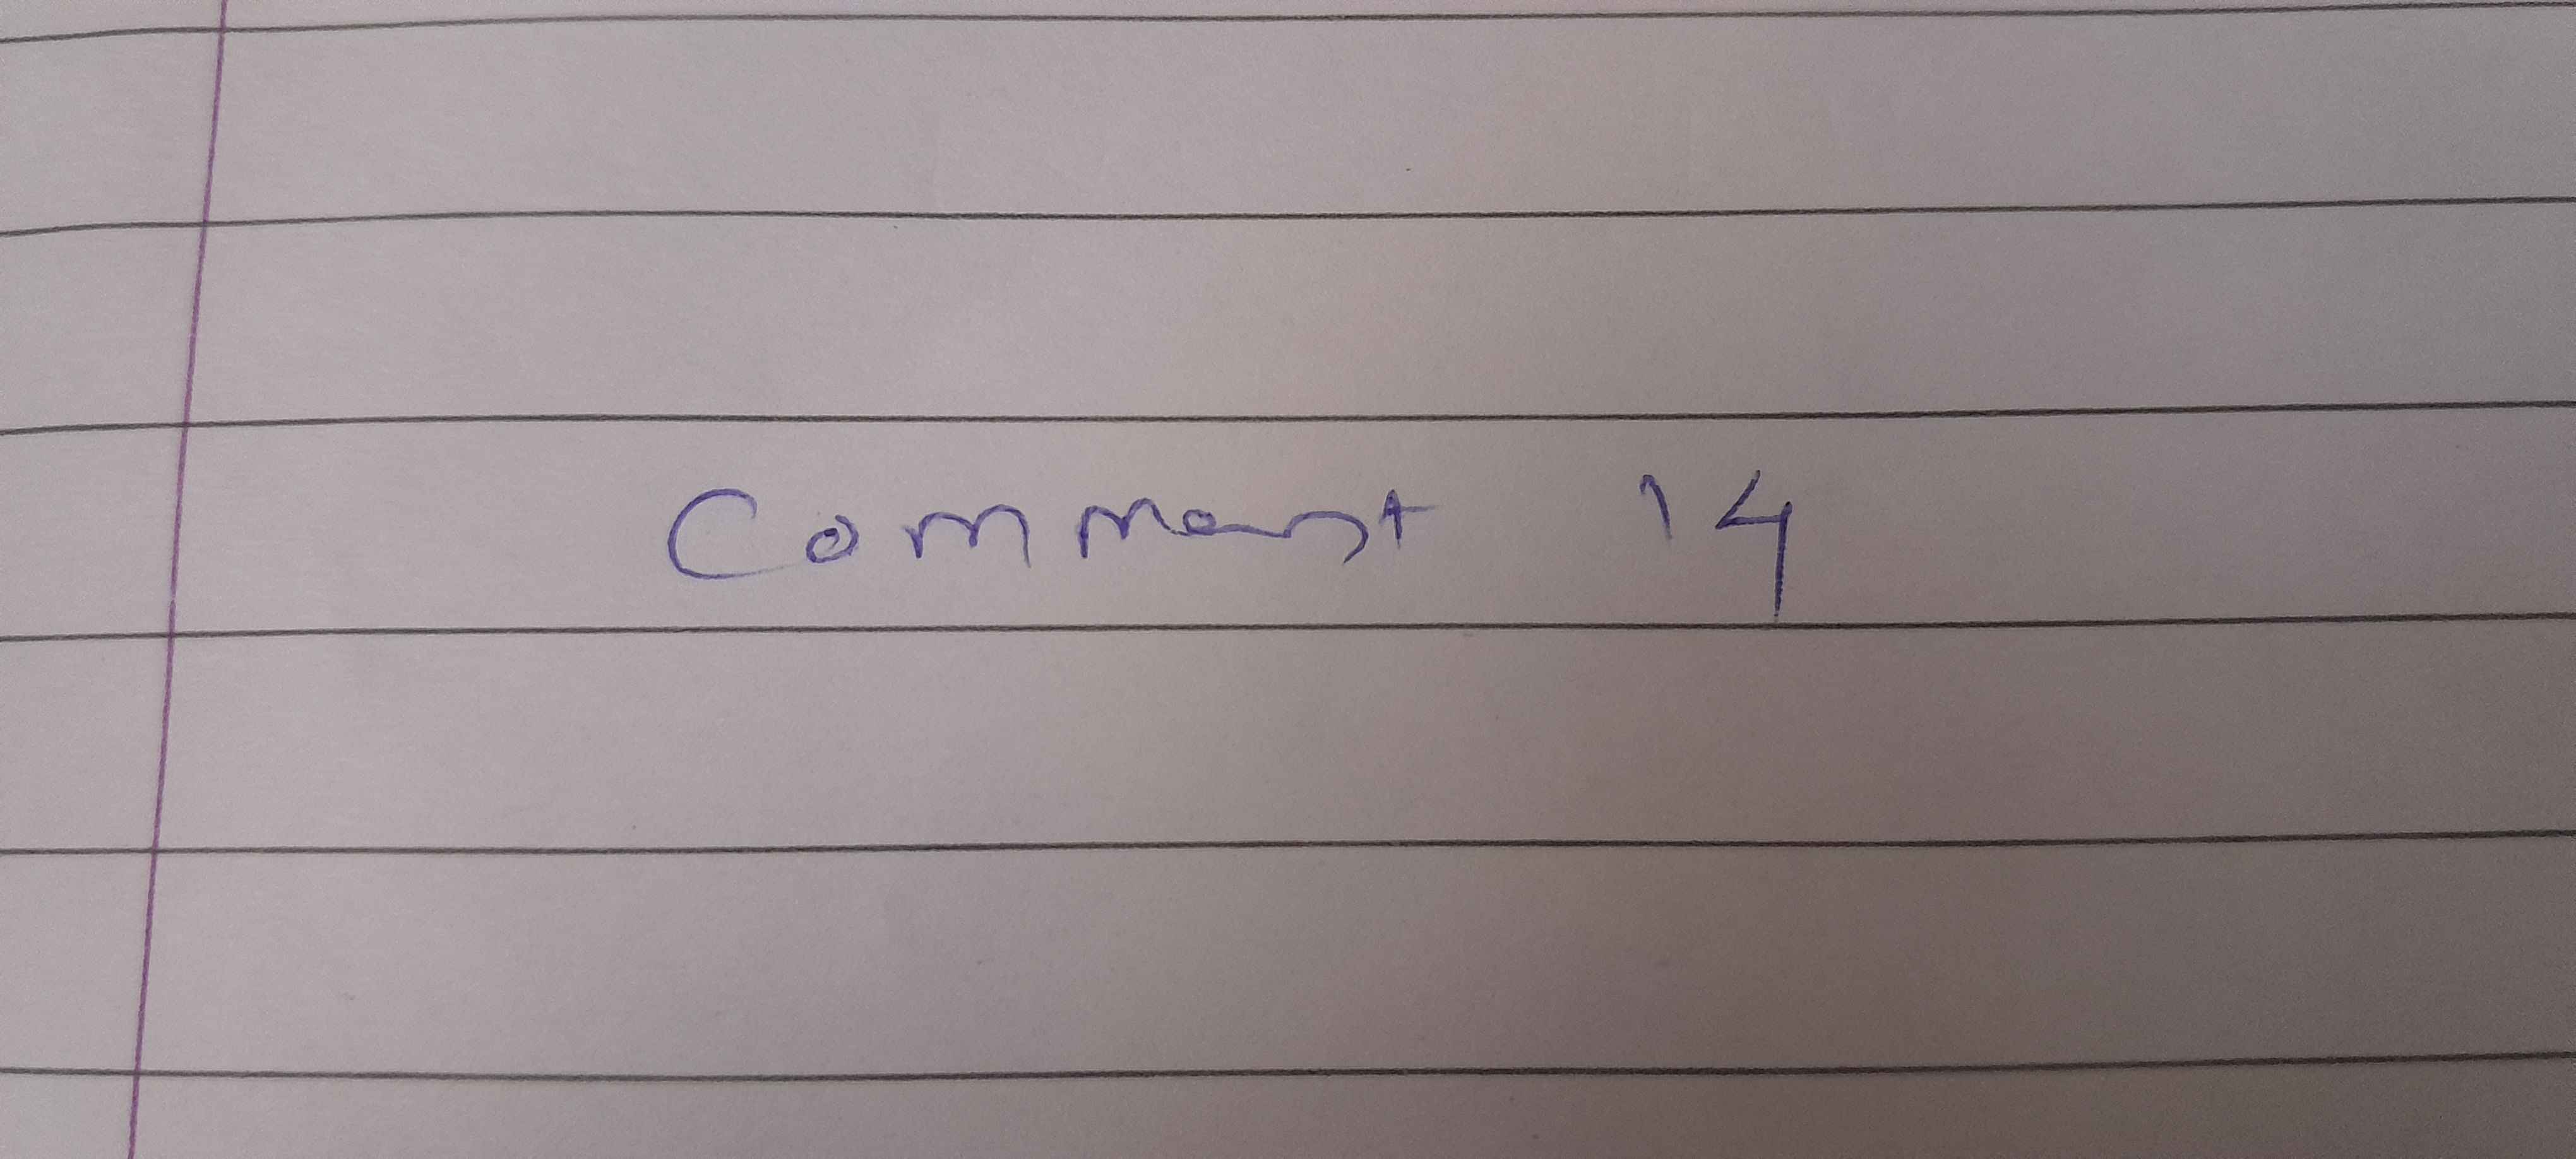 Comment 14